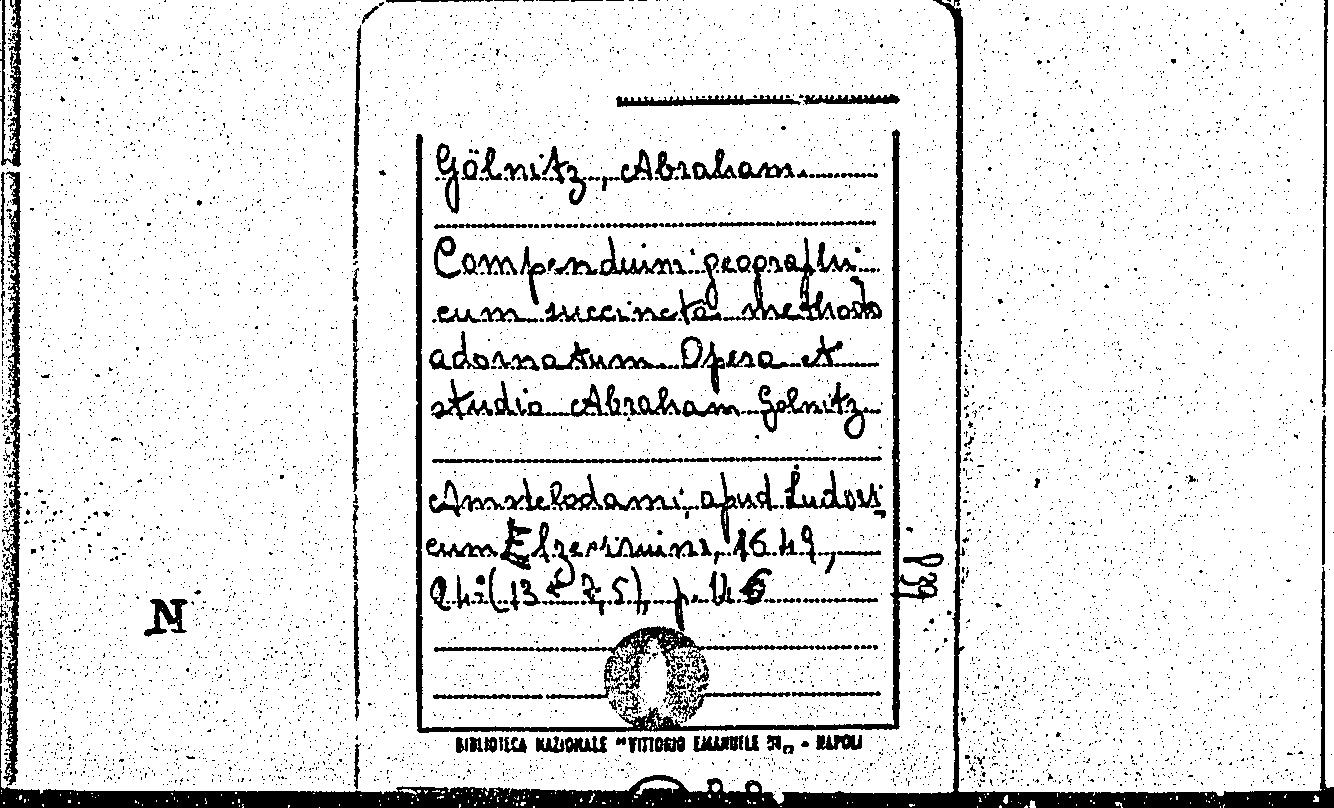 Gölnitz, Abraham.
Compendium geographi
cum succincta methodo
adornatum Opera et
studio Abraham Golnitz
Amstelodami, apud Ludovi
cum Elzevirium, 1649,
24: (13 x 7,5), p.
BIBLIOTECA NAZIONALE "VITTORIO EMANUELE III" - NAPOLI
N